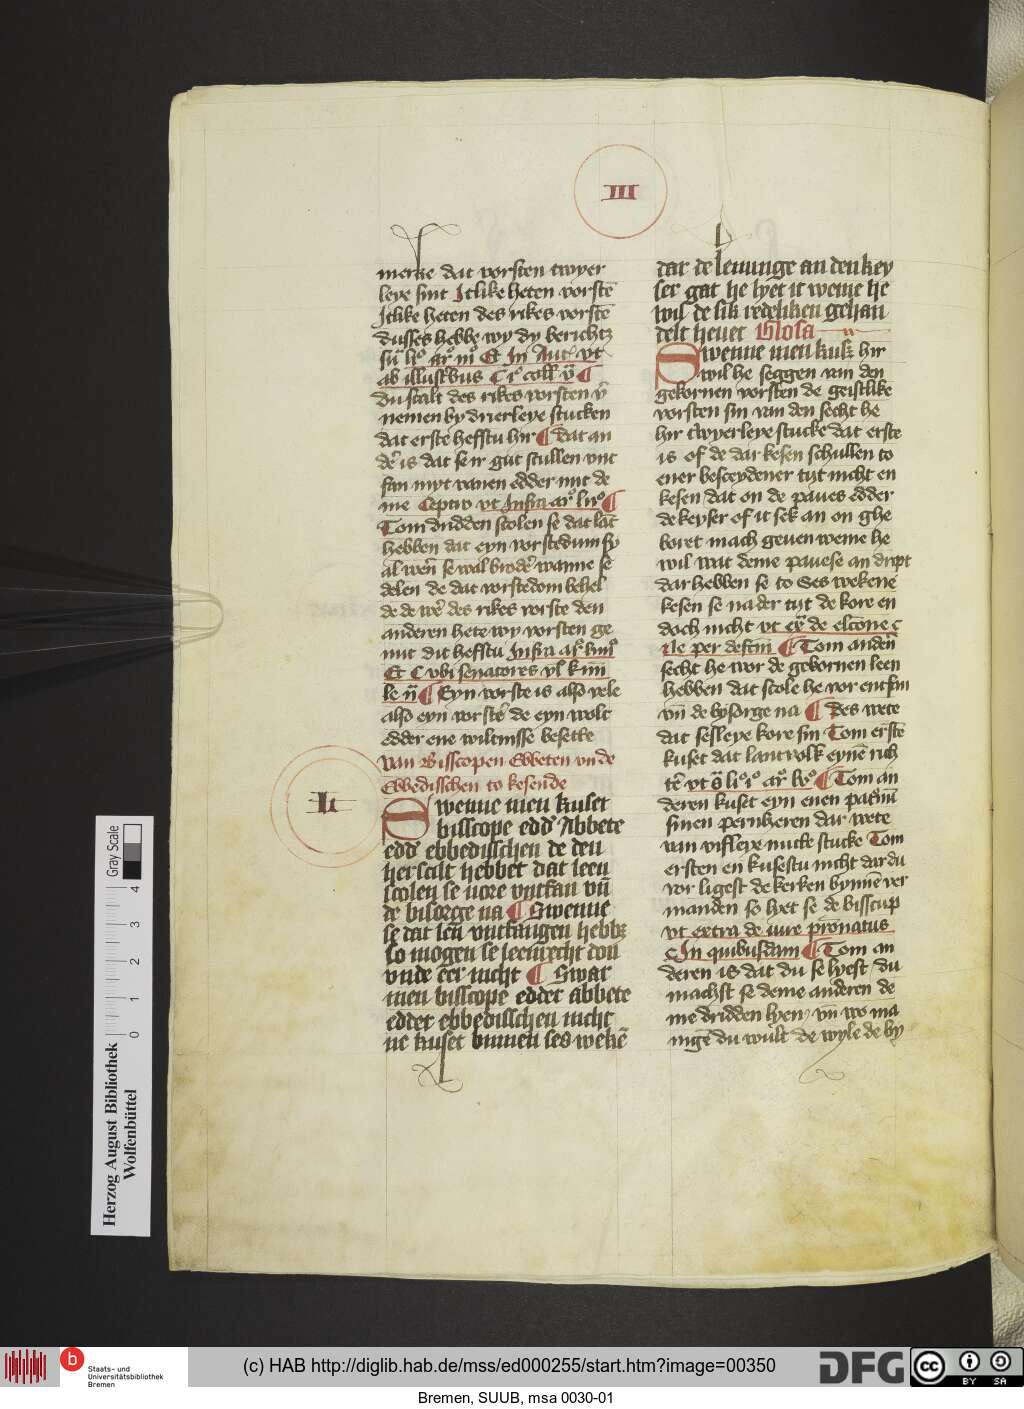 III
merke dat vorsten twyer
leye sint Itlike heten vorstē
Itlike heten des rikes vorstē
dusses hebbe wy dy berichtz
ab illustbus
du scalt des rikes vorsten v̄
nemen by drierleye stucken
dat erste hefstu hir ¶ dat an
der̄ is dat se ir gut scullen vnt
fan myt vanen edder mit de
me Ceptro vt Infra ar° lx° ¶
Tom drudden scolen se dat lāt
hebben dat eyn vorstedum sy
al wer̄n se wal broder̄ wanne se
delen de dat vorstedom behel
de de wer̄ des rikes vorste den
anderen hete wy vorsten ge
mit dit hefstu Infra
Et C vbi senatores vl
le v̄ ¶ Eyn vorste is also vele
also eyn vorster̄ de eyn wolt
edder ene wiltnisse besetke
van Bisscopen Ebbeten vnde
Ebbedisschen to kesende
L
Swenne men kuset
bisscope edd̄ Abbete
edd̄ ebbedisschen de den
herscilt hebbet dat leen
scolen se vore vntfan vn̄
de bisorge na ¶ Swenne
se dat len̄ vntfangen hebbz
so mogen se leenrecht don
vnde eer nicht ¶ Swar
men bisscope edder abbete
edder ebbedisschen nicht
ne kuset bynnen ses wekē
dar de lenunge an den key
ser gat he lyet it weme he
wil de sik redeliken gehan
delt hevet Glosa
Swenne men kusz hir
wil he seggen van den
gekornen vorsten de geistlike
vorsten sin van den secht he
hir twyerleye stucke dat erste
is of de dar kesen schullen to
ener besceydener tyt nicht en
kesen dat on de paves edder
de keyser of it sek an on ghe
boret mach geuen weme he
wil wat deme pauese an dript
dar hebben se to Ses wekene
kesen se na der tyt de kore en
doch nicht vt ex̄ de elctōne c
ne per defctm ¶ Tom andern̄
secht he wor de gebornen leen
hebben dat scole he vor entfan
vn̄ de bysorge na ¶ Des wete
dat sesleye kore sin Tom erstē
kuset dat lantvolk eynē rich
ter̄ vt s̄ li° i° ar° lv° ¶ Tom an
deren kuset eyn enen patn̄m
sinen pernheren dar wete
van vifleye nutke stucke Tom
ersten en kusestu nicht dar du
vor ligest de kerken bynnē ver
manden so lyet se de bisscup
vt extra de iure pr̄onatus
c In quibusdam ¶ Tom an
deren is dat du se lyest / du
machst se deme anderen de
me drudden lyen / vn̄ wo ma
nigē du wult de wyle de by
Gray Scale
0 1 2 3 4
Herzog August Bibliothek
Wolfenbüttel
b
Staats- und
Universitätsbibliothek
Bremen
(c) HAB http://diglib.hab.de/mss/ed000255/start.htm?image=00350
DFG
cc BY SA
Bremen, SUUB, msa 0030-01